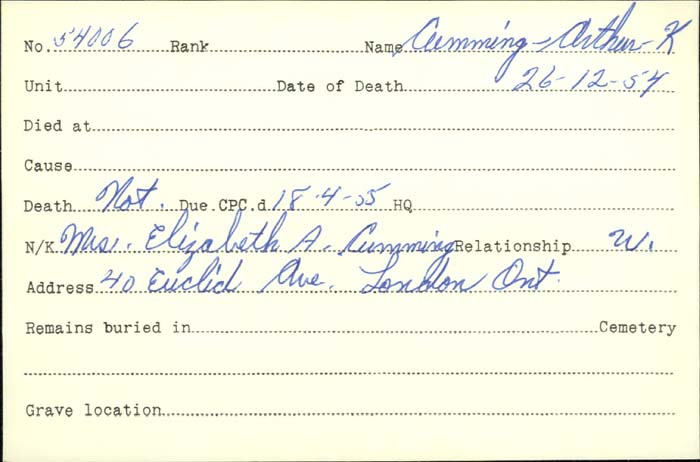 No. 54006 Rank Name Cumming - Arthur - K
Unit Date of Death 26-12-54
Died at
Cause
Death Not. Due CPC.d 18-4-55 HQ
N/K Mrs. Elizabeth A. Cumming Relationship W.
Address 40 Euclid Ave. London Ont.
Remains buried in Cemetery
Grave location